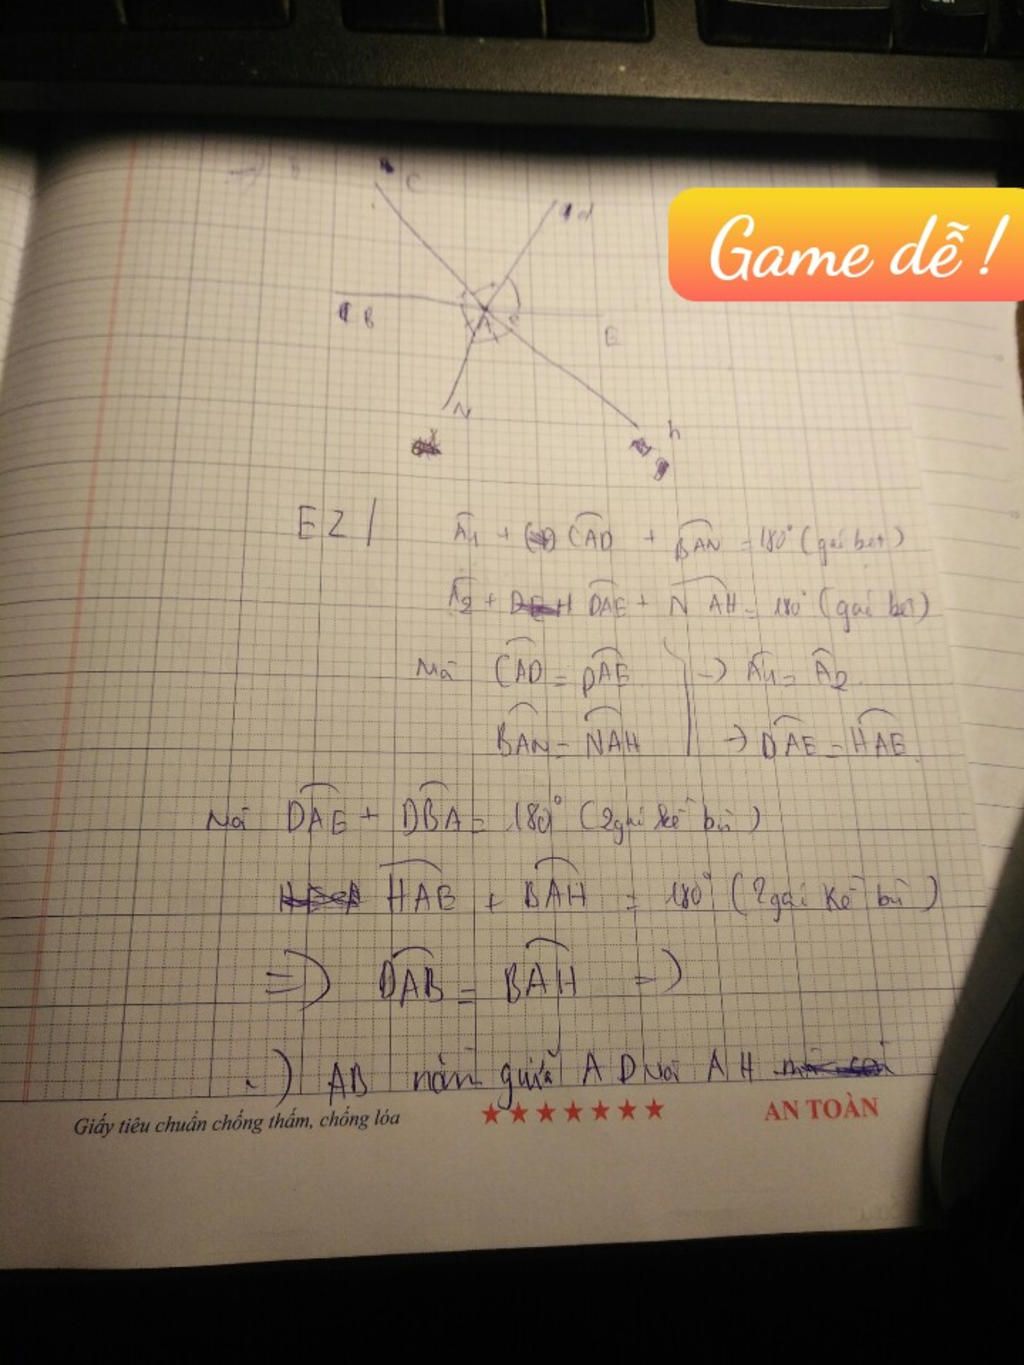 Game dễ !
C
d
B
E
N
h
EZ!
Â1 + CAD + BAN = 180° (gái bẹt)
Â2 + DAE + NAH = 180° (gái bẹt)
Mà CAD = DAE → Â1 = Â2
BAN = NAH → DAE = HAE
Mà DAE + DBA = 180° (2 gái kề bù)
HAE + BAH = 180° (2 gái kề bù)
=> DAB = BAH =>
AB nằm giữa AD và AH
Giấy tiêu chuẩn chống thấm, chống lóa
AN TOÀN